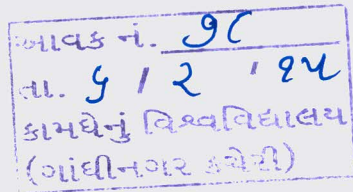 આવક નં. ૭૮
તા. ૬ / ૨ / ૧૫
કામધેનું વિશ્વવિદ્યાલય
(ગાંધીનગર કચેરી)